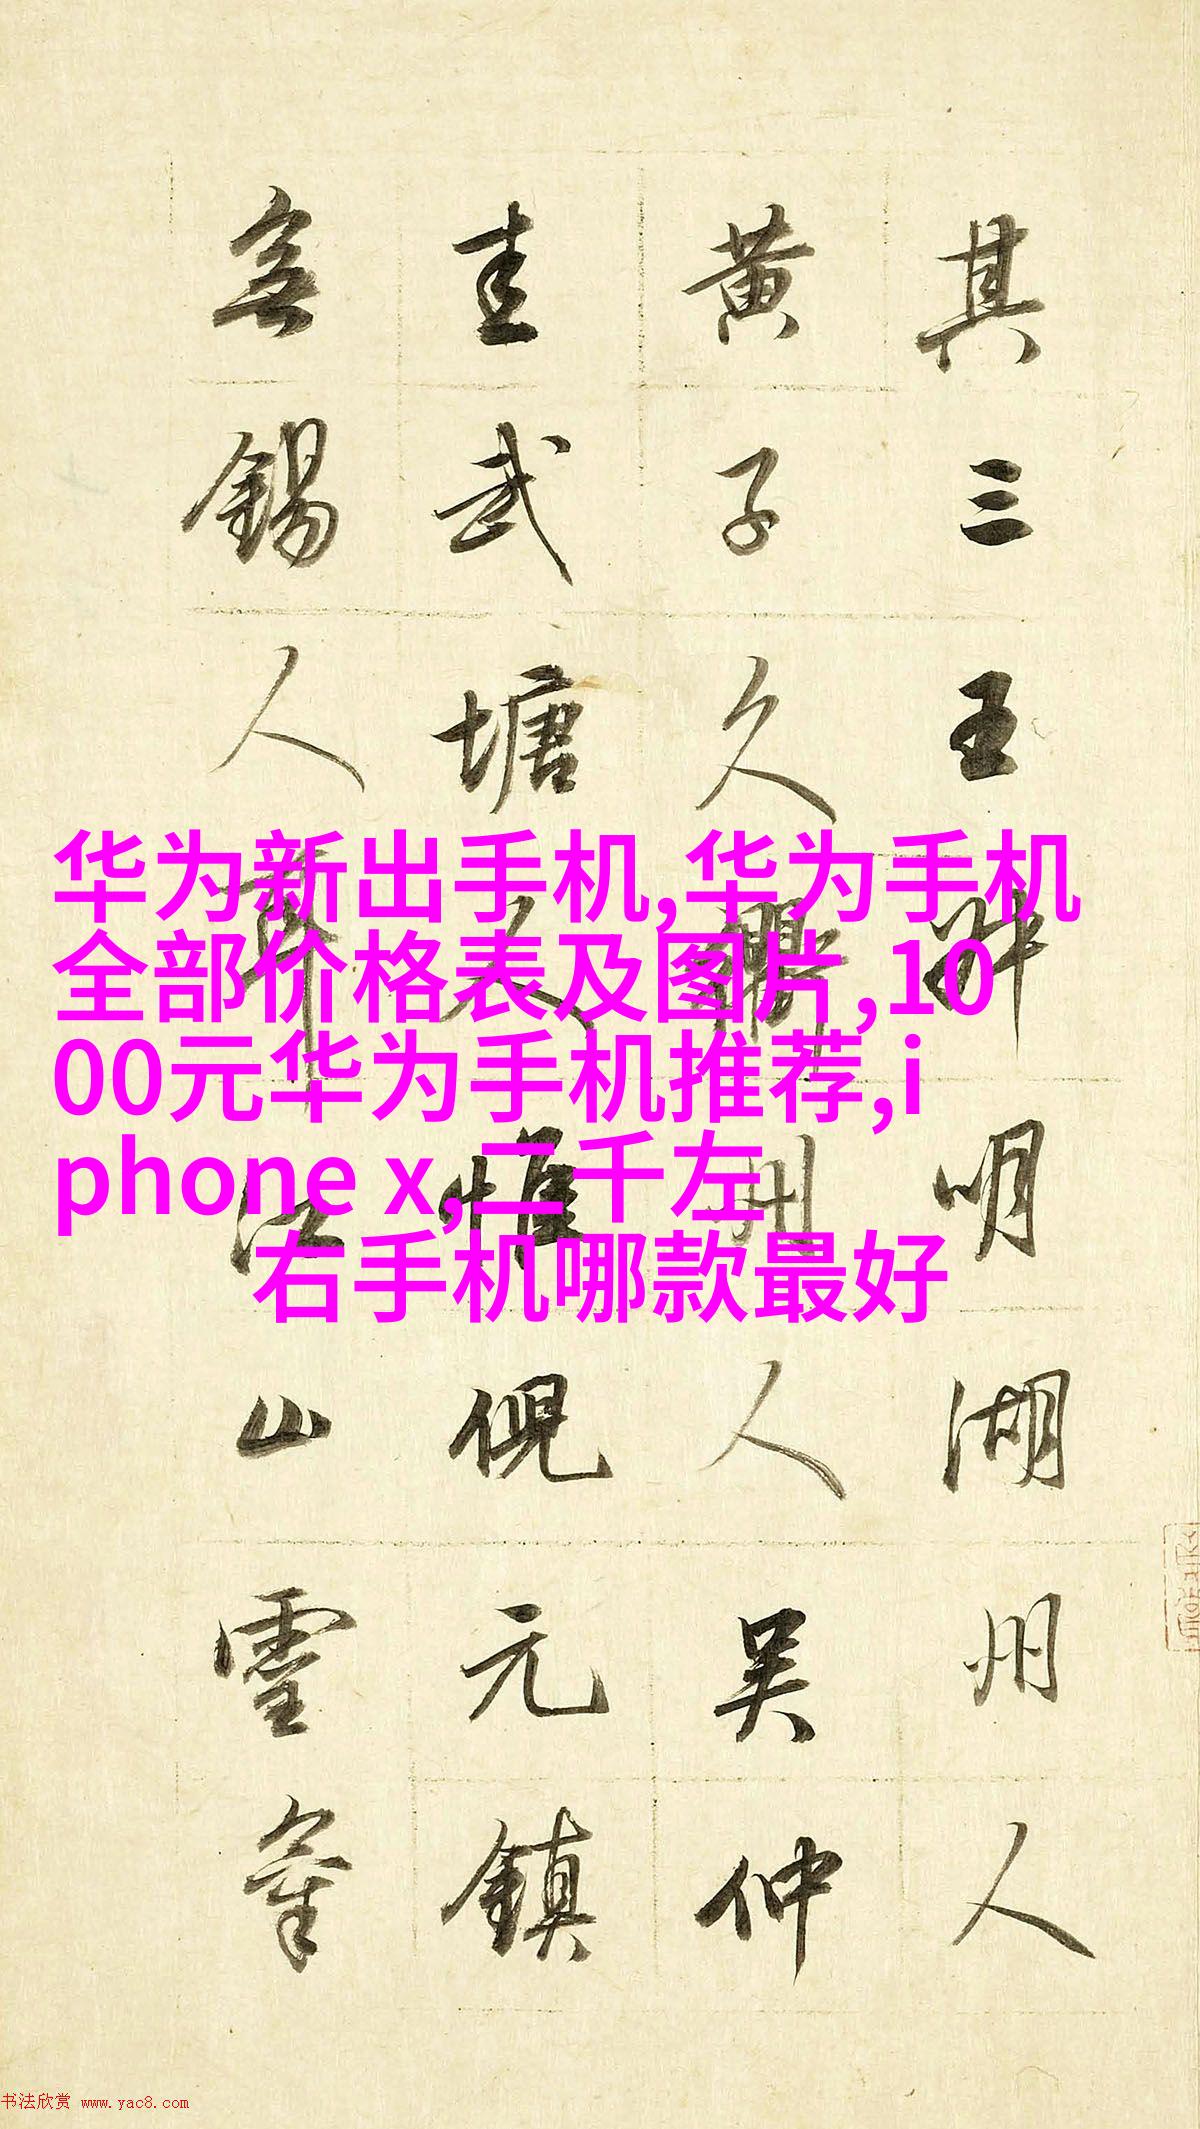 其三王叔明湖州人
黄子久衢州人吴仲
圭武塘人惟倪元鎮
無錫人耳江山靈氣
华为新出手机,华为手机
全部价格表及图片,10
00元华为手机推荐,i
phone x,二千左
右手机哪款最好
书法欣赏 www.yac8.com